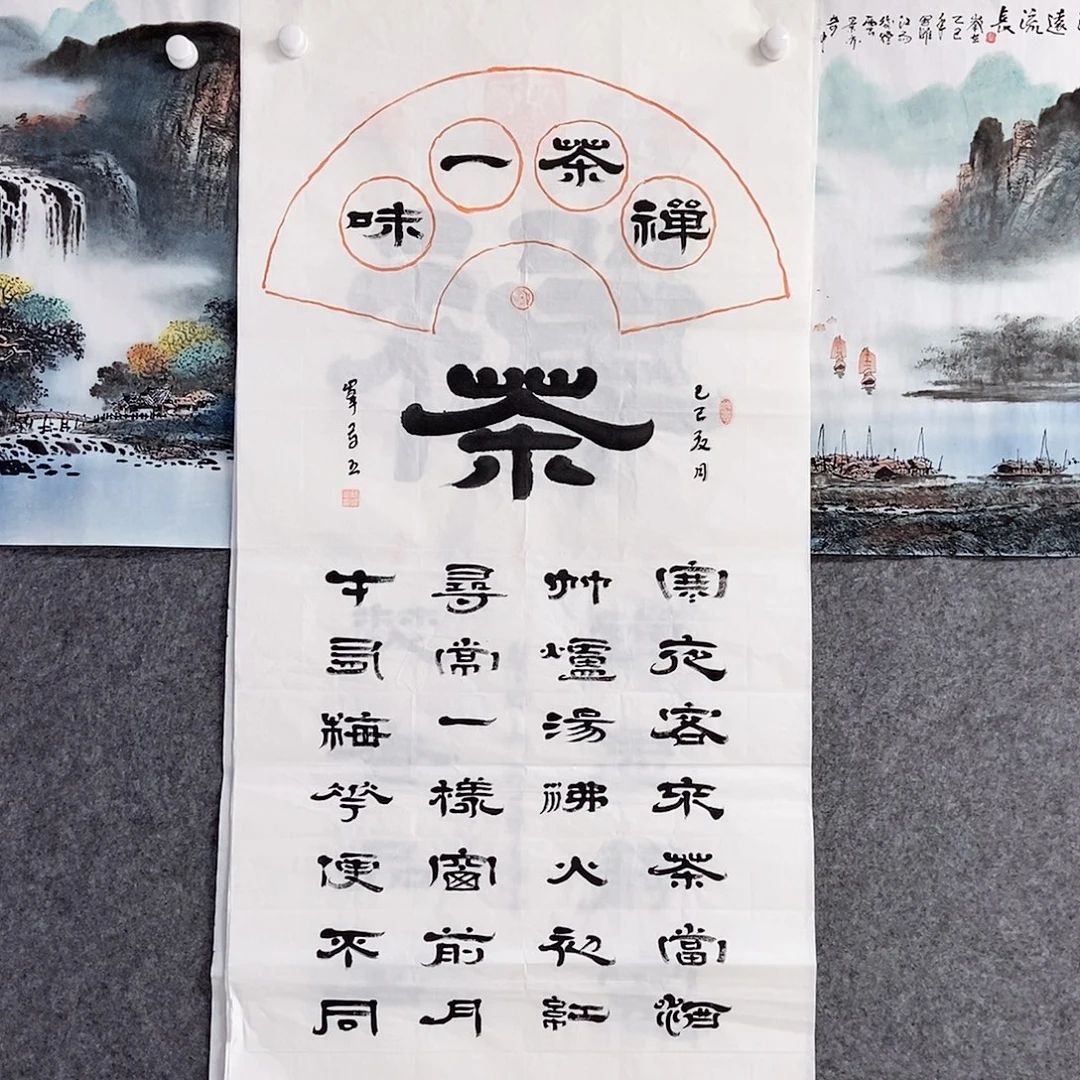 禪茶一味
茶
乙巳夏月
寒夜客來茶當酒
竹爐湯沸火初紅
尋常一樣窗前月
才有梅花便不同
遠流長